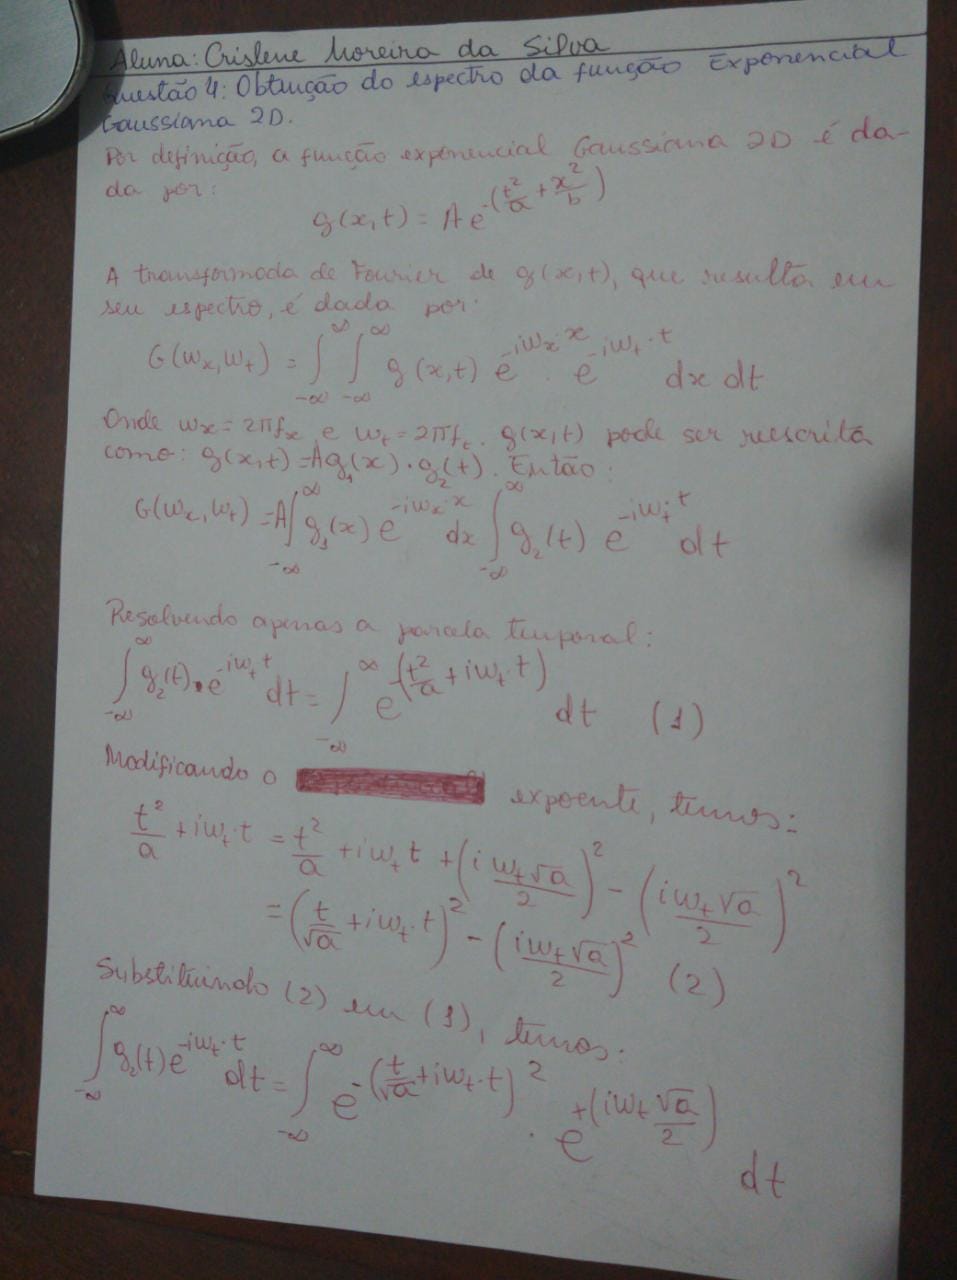 Aluna: Crislene Moreira da Silva
Questão 4: Obtenção do espectro da função Exponencial
Gaussiana 2D.
Por definição, a função exponencial Gaussiana 2D é da-
da por:
g(x,t) = A e^{-(t²/a + x²/b)}
A transformada de Fourier de g(x,t), que resulta em
seu espectro, é dada por:
G(wₓ,wₜ) = ∫_{-∞}^{∞} ∫_{-∞}^{∞} g(x,t) e^{-iwₓx} · e^{-iwₜ·t} dx dt
Onde wₓ = 2πfₓ e wₜ = 2πfₜ. g(x,t) pode ser reescrita
como: g(x,t) = Ag₁(x)·g₂(t). Então:
G(wₓ,wₜ) = A∫_{-∞}^{∞} g₁(x) e^{-iwₓ·x} dx ∫_{-∞}^{∞} g₂(t) e^{-iwₜ·t} dt
Resolvendo apenas a parcela temporal:
∫_{-∞}^{∞} g₂(t)·e^{-iwₜt} dt = ∫_{-∞}^{∞} e^{-(t²/a + iwₜ·t)} dt (1)
Modificando o expoente, temos:
t²/a + iwₜ·t = t²/a + iwₜt + (i wₜ√a/2)² - (iwₜ√a/2)²
= (t/√a + iwₜ·t)² - (iwₜ√a/2)² (2)
Substituindo (2) em (1), temos:
∫_{-∞}^{∞} g₂(t)e^{-iwₜ·t} dt = ∫_{-∞}^{∞} e^{-(t/√a + iwₜ·t)²} · e^{+(iwₜ√a/2)} dt